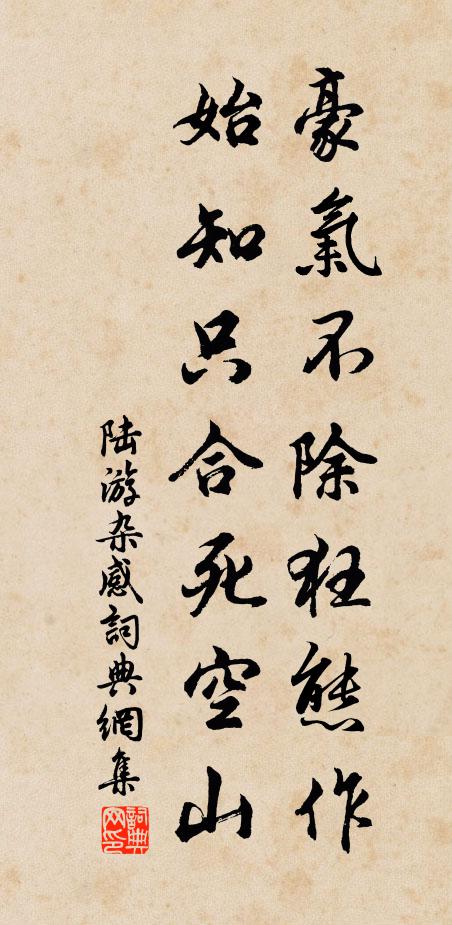 豪氣不除狂態作
始知只合死空山
陆游杂感詞典網集
詞典网印